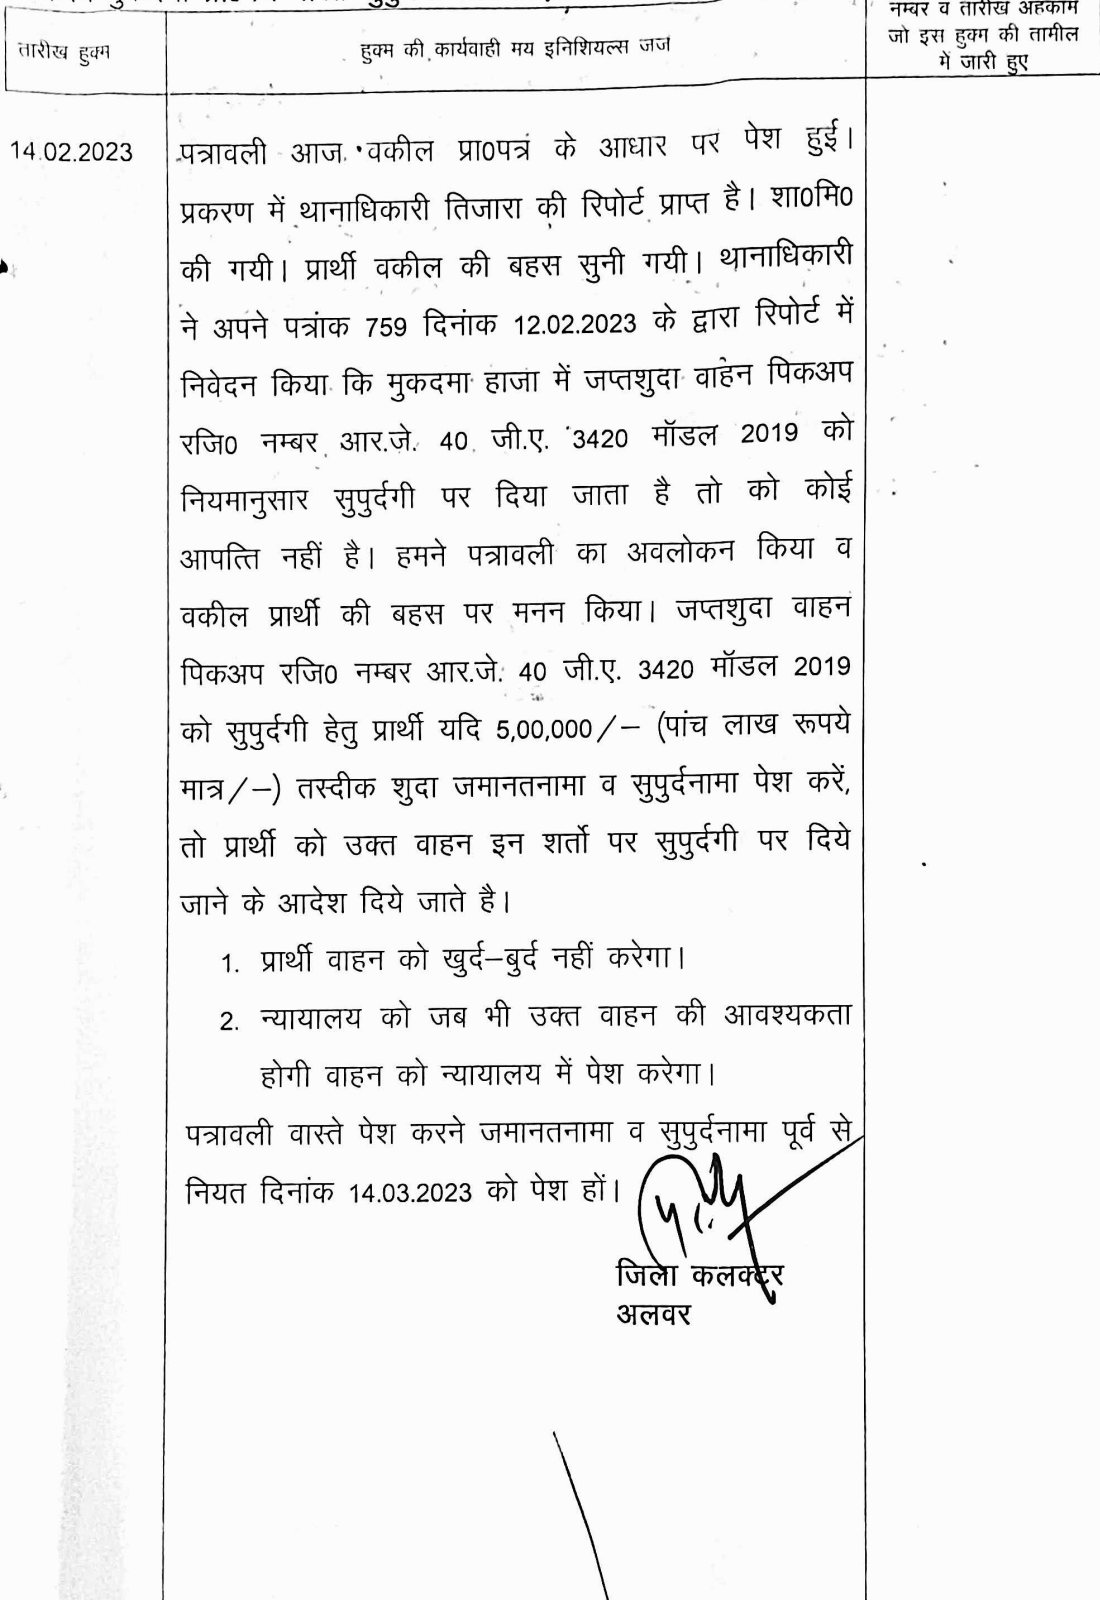 नम्बर व तारीख अहकाम
तारीख हुक्म
हुक्म की कार्यवाही मय इनिशियल्स जज
जो इस हुक्म की तामील
में जारी हुए
14.02.2023
पत्रावली आज वकील प्रा0पत्र के आधार पर पेश हुई।
प्रकरण में थानाधिकारी तिजारा की रिपोर्ट प्राप्त है। शा0मि0
की गयी। प्रार्थी वकील की बहस सुनी गयी। थानाधिकारी
ने अपने पत्रांक 759 दिनांक 12.02.2023 के द्वारा रिपोर्ट में
निवेदन किया कि मुकदमा हाजा में जप्तशुदा वाहन पिकअप
रजि0 नम्बर आर.जे. 40 जी.ए. 3420 मॉडल 2019 को
नियमानुसार सुपुर्दगी पर दिया जाता है तो को कोई
आपत्ति नहीं है। हमने पत्रावली का अवलोकन किया व
वकील प्रार्थी की बहस पर मनन किया। जप्तशुदा वाहन
पिकअप रजि0 नम्बर आर.जे. 40 जी.ए. 3420 मॉडल 2019
को सुपुर्दगी हेतु प्रार्थी यदि 5,00,000/– (पांच लाख रूपये
मात्र/–) तस्दीक शुदा जमानतनामा व सुपुर्दनामा पेश करें,
तो प्रार्थी को उक्त वाहन इन शर्तो पर सुपुर्दगी पर दिये
जाने के आदेश दिये जाते है।
1. प्रार्थी वाहन को खुर्द–बुर्द नहीं करेगा।
2. न्यायालय को जब भी उक्त वाहन की आवश्यकता
होगी वाहन को न्यायालय में पेश करेगा।
पत्रावली वास्ते पेश करने जमानतनामा व सुपुर्दनामा पूर्व से
नियत दिनांक 14.03.2023 को पेश हों।
जिला कलक्टर
अलवर